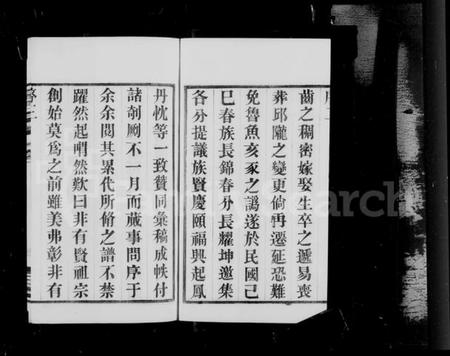 齒之稠密嫁娶生卒之遞易喪
葬邱隴之變更倘再遷延恐難
免魯魚亥豕之譌遂於民國己
巳春族長錦春分長耀坤邀集
各分提議族賢慶頤福興起鳳
丹忱等一致贊同彙稿成帙付
諸剞劂不一月而蕆事問序于
余余閱其累代所脩之譜不禁
躍然起喟然歎曰非有賢祖宗
創始莫爲之前雖美弗彰非有